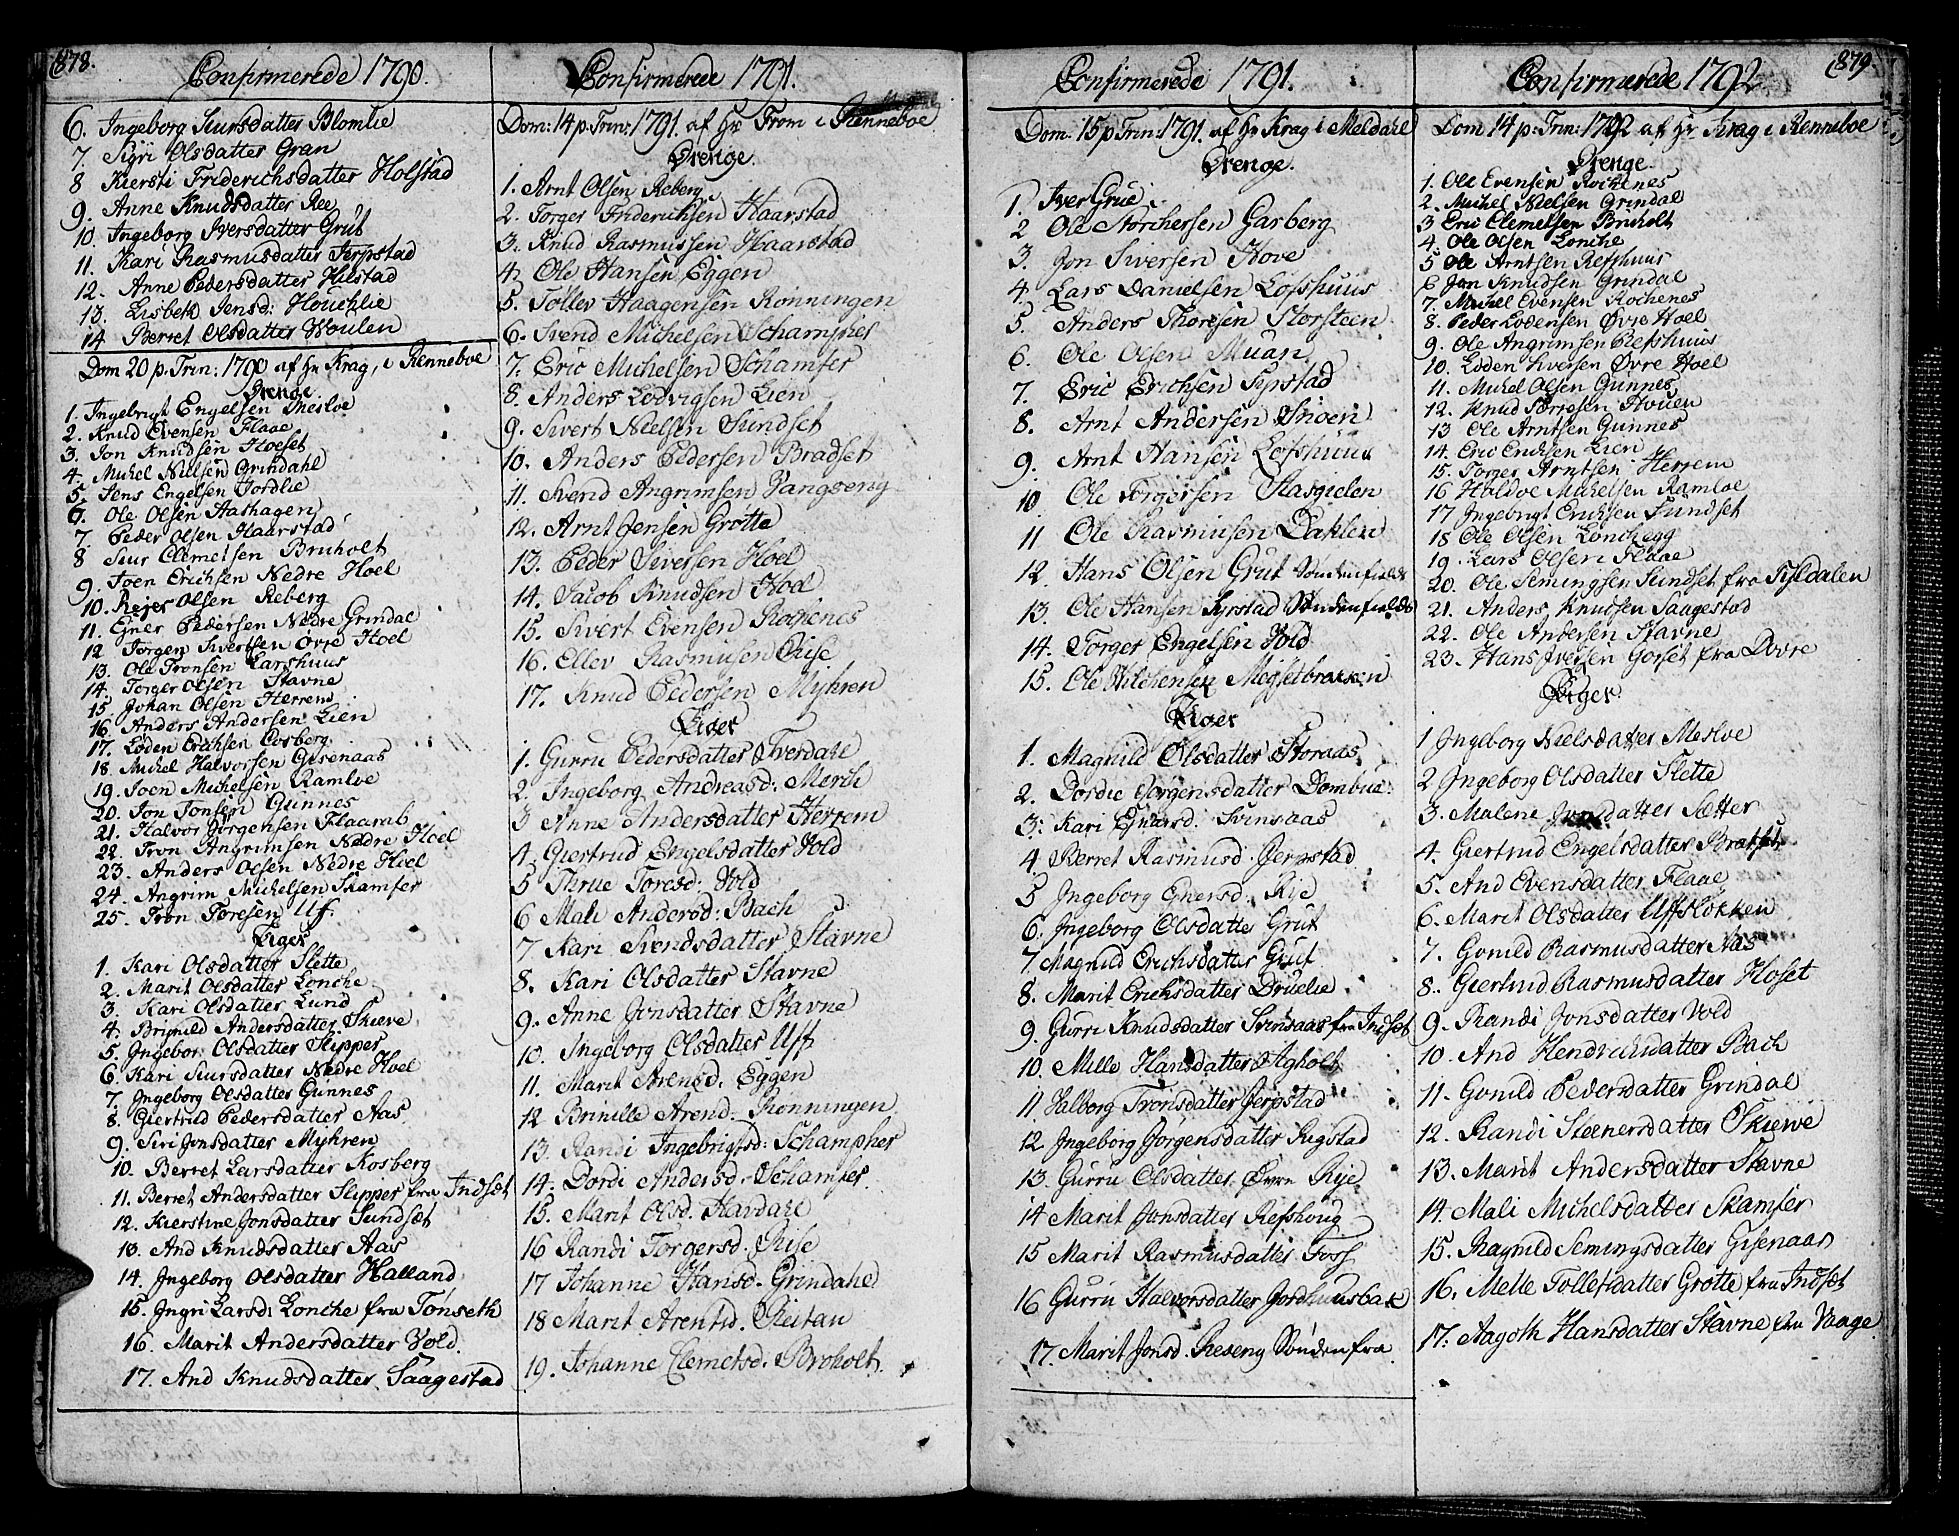 878.
Confirmerede 1790.
6. Ingeborg Siursdatter Blomlie
7. Sigri Olsdatter Gran
8 Kiersti Friderichsdatter Holstad
9. Anne Knudsdatter Ree
10. Ingeborg Iversdatter Grut
11. Kari Rasmusdatter Jerpstad
12. Anne Pedersdatter Hilstad
13. Lisbeth Jensd: Houchlie
14 Berret Olsdatter Woulen
Dom 20 p. Trin: 1790 af Hr Krag, i Renneboe
Drenge.
1. Ingebrigt Engelsen Mesloe
2. Knud Evensen Flaae
3. Jon Knudsen Hoeset
4. Michel Nielsen Grindahl
5. Jens Engelsen Jordlie
6. Ole Olsen Aashagen
7. Peder Olsen Haarstad
8 Siur Clemetsen Bruholt
9. Joen Erichsen Nedre Hoel
10. Rejer Olsen Reberg
11. Ejner Pedersen Nedre Grindal
12 Torgen Sivertsen Øvre Hoel
13. Ole Tronsen Larshuus
14. Torger Olsen Stavne
15 Johan Olsen Herrem
16. Anders Andersen Lien
17. Loden Erichsen Cosberg
18. Michel Halvorsen Gisenaas
19. Joen Michelsen Ramloe
20. Jon Jonsen Gunnes
21. Halvor Jørgensen Flaamb
22. Tron Angrimsen Nedre Hoel
23. Anders Olsen Nedre Hoel
24. Angrim Michelsen Skamfer
25. Tron Toresen Uf.
Piger
1. Kari Olsdatter Slette
2. Marit Olsdatter Lonche
3. Kari Olsdatter Lund
4. Brignild Andersdatter Skieve
5. Ingebor: Olsdatter Slipper
6. Kari Siursdatter Nedre Hoel
7. Ingeborg Olsdatter Gunnes
8. Giertrud Pedersdatter Aas
9. Siri Jonsdatter Myhren
10. Berret Larsdatter Kosberg
11. Berret Andersdatter Slipper fra Indset
12. Kierstine Jonsdatter Sundset
13. And Knudsdatter Aas
14. Ingeborg Olsdatter Halland
15. Ingri Larsd: Lonche fra Tønseth
16. Marit Andersdatter Vold.
17. And Knudsdatter Saagestad
Confirmerede 1791.
Dom: 14 p. Trin: 1791. af Hr From i Renneboe
Drenge.
1. Arnt Olsen Reberg
2. Torger Friderichsen Haarstad
3. Knud Rasmussen Haarstad
4. Ole Hansen Eggen
5. Tollev Haagensen Ronningen
6. Svend Michelsen Schampfer
7. Eric Michelsen Schamfer
8. Anders Lodvigsen Lien
9. Sivert Nielsen Sundset
10. Anders Pedersen Bradset
11. Svend Angrimsen Vangseng
12. Arnt Jensen Grotte
13. Peder Siversen Hoel
14. Jacob Knudsen Hoel
15. Sivert Evensen Rochenes
16. Ellev Rasmusen Rise
17. Knud Pedersen Myhren
Piger
1. Gurru Pedersdatter Tverdahl
2. Ingeborg Andreasd: Merch
3 Anne Andersdatter Herrem
4. Giertrud Engelsdatter Vold
5 Thrue Toresd: Vold
6 Mali Andersd: Bach
7 Kari Svendsdatter Stavne
8. Kari Olsdatter Stavne
9. Anne Jonsdatter Stavne
10. Ingeborg Olsdatter Uff
11. Marit Arensd. Eggen
12 Brinille Arend: Ronningen
13. Randi Ingebrigtsd: Schampher
14. Dordi Andersd. Schamfer
15. Marit Olsd. Havdahl
16 Randi Torgersd. Rise
17 Johanne Hansd. Grindahl
18 Marit Arentsd. Reitan
19. Johanne Clemetsd. Broholt.
Confirmerede 1791.
Dom. 15 p Trin: 1791. af Hr Krag i Meldahl
Drenge.
1. Iver Grue
2 Ole Norchersen Garberg
3. Jon Siversen Hove
4. Lars Danielsen Lofshuus
5. Anders Thoresen Storsteen
6. Ole Olsen Muan
7. Eric Erichsen Syrstad
8. Arnt Andersen Snoen
9. Arnt Hansen Lofshuus
10. Ole Torgersen Hasgielen
11 Ole Rasmusen Dahlen
12. Hans Olsen Grut Søndenfields
13. Ole Hansen Syrstad Søndenfields
14. Torger Engelsen Vold
15. Ole Wilchensen Megsetbraaen
Piger
1. Magnild Olsdatter Storaas
2. Dordie Jørgensdatter Dombue
3. Kari Ejnersd: Svinsaas
4. Berret Rasmusd. Jerpstad
5 Ingeborg Ejnersd. Rije
6. Ingeborg Olsdatter Grut
7 Magnild Erichsdatter Grut
8. Marit Erichsdatter Druelie
9. Gurri Knudsdatter Svinsaas fra Indset
10. Mille Hansdatter Agholt
11 Valborg Tronsdatter Jerpstad
12. Ingeborg Jørgensdatter Rugstad
13. Gurru Olsdatter Øvre Rije
14 Marit Jonsdatter Refshoug
15 Marit Rasmusdatter Foss
16 Gurru Halvorsdatter Jordhuusbak
17. Marit Jonsd. Reseng Sønden fra
879.
Confirmerede 1792
Dom 14 p: Trin: 1792 af Hr Krag i Renneboe
Drenge.
1. Ole Evensen Rochenes
2. Michel Nielsen Grindal
3 Eric Clemetsen Bruholt
4. Ole Olsen Lonche
5 Ole Arntsen Refshuus
6 Jon Knudsen Grindal
7. Michel Evensen Rochenes
8. Peder Lodensen Øvre Hoel
9. Ole Angrimsen Refshuus
10. Loden Iversen Øvre Hoel
11. Michel Olsen Gunnes
12. Knud Torresen Houen
13 Ole Arntsen Gunnes
14. Eric Erichsen Lien
15. Torger Arntsen Herrem
16 Haldoe Michelsen Ramloe
17 Ingebrigt Erichsen Sundset
18 Ole Olsen Lonchegg
19. Lars Olsen Flaae
20. Ole Semingsen Sundset fra Tyldalen
21. Anders Knudsen Saagestad
22. Ole Andersen Stavne
23. Hans Iversen Gorset fra Dovre
Piger
1 Ingeborg Nielsdatter Mesloe
2 Ingeborg Olsdatter Slette
3. Malene Jonsdatter Sætter
4. Giertrud Engelsdatter Brætset
5. And Evensdatter Flaae
6. Marit Olsdatter Uffsløkken
7. Gonild Rasmusdatter Naas
8. Giertrud Rasmusdatter Hoset
9. Randi Jonsdatter Vold
10. And Hendrichsdatter Bach
11. Gonild Pedersdatter Grindal
12. Randi Steenersdatter Skieve
13. Marit Andersdatter Stavne
14. Mali Michelsdatter Skamfer
15. Ragnild Semingsdatter Gisenaas
16. Melle Tollefsdatter Grotte fra Indset
17. Aagoth Hansdatter Stavne fra Vaage